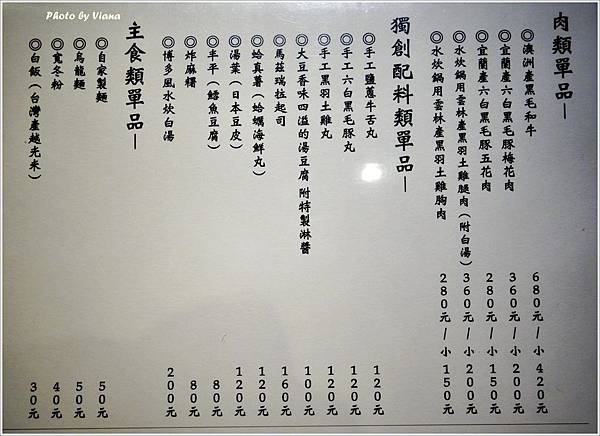 Photo by Viana
肉類單品—
◎澳洲產黑毛和牛 680元/小420元
◎宜蘭產六白黑毛豚梅花肉 360元/小200元
◎宜蘭產六白黑毛豚五花肉 280元/小150元
◎水炊鍋用雲林產黑羽土雞腿肉(附白湯) 360元/小200元
◎水炊鍋用雲林產黑羽土雞胸肉 280元/小150元
獨創配料類單品—
◎手工鹽蔥牛舌丸 120元
◎手工六白黑毛豚丸 120元
◎手工黑羽土雞丸 120元
◎大豆香味四溢的湯豆腐 附特製淋醬 100元
◎馬茲瑞拉起司 160元
◎蛤真薯(蛤蠣海鮮丸) 120元
◎湯葉(日本豆皮) 120元
◎半平(鱈魚豆腐) 80元
◎炸麻糬 80元
◎博多風水炊白湯 200元
主食類單品—
◎自家製麵 50元
◎烏龍麵 50元
◎寬冬粉 40元
◎白飯(台灣產越光米) 30元